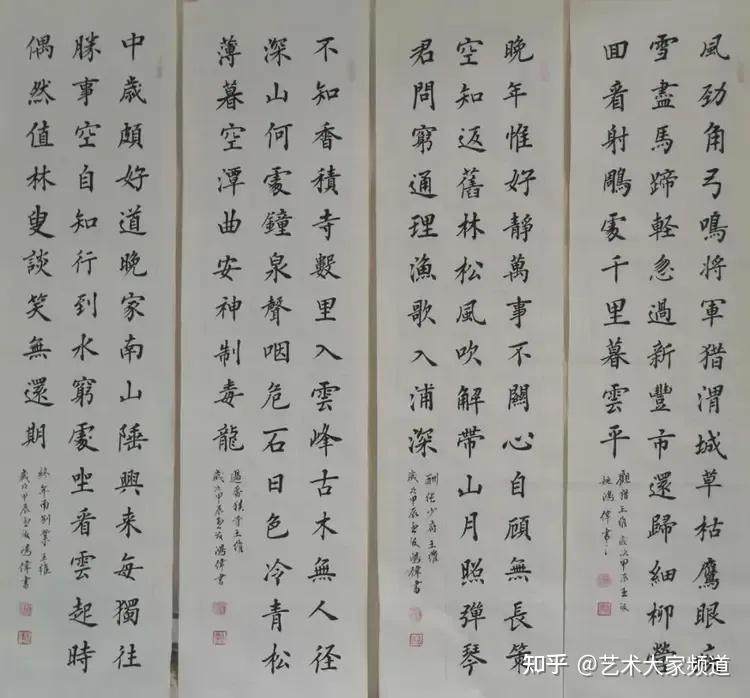 風劲角弓鳴将軍猎渭城草枯鷹眼
雪盡馬蹄軽忽過新豐市還歸細柳營
回看射鵰處千里暮雲平
觀猎王維 歲次甲辰孟夏
姚鴻偉書
晚年惟好靜萬事不關心自顧無長策
空知返舊林松風吹解帶山月照彈琴
君問窮通理漁歌入浦深
酬張少府王維
歲次甲辰孟夏鴻偉書
不知香積寺數里入雲峰古木無人径
深山何處鐘泉聲咽危石日色冷青松
薄暮空潭曲安神制毒龍
過香積寺王維
歲次甲辰孟夏鴻偉書
中歲頗好道晚家南山陲興来每獨往
勝事空自知行到水窮處坐看雲起時
偶然值林叟談笑無還期
終年南别業王維
歲次甲辰孟夏鴻偉書
知乎 @艺术大家频道